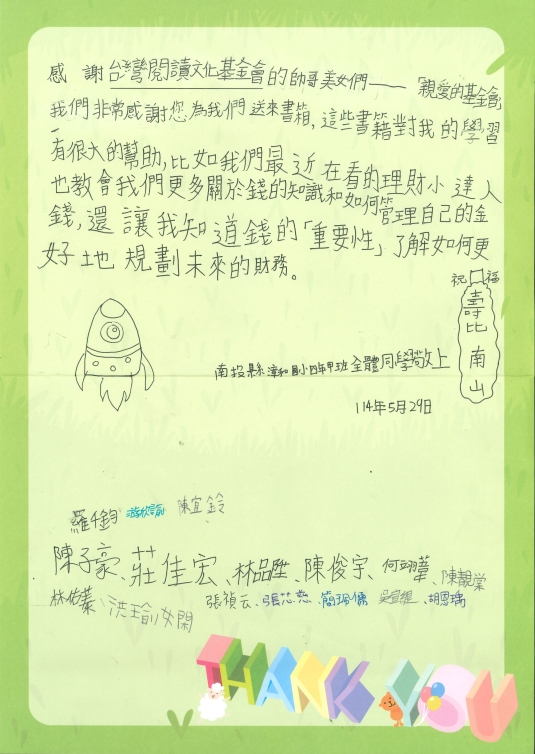 感謝台灣閱讀文化基金會的帥哥美女們——「親愛的基金會」
我們非常感謝您為我們送來書箱,這些書籍對我的學習
有很大的幫助,比如我們最近在看的理財小達人
也教會我們更多關於錢的知識和如何管理自己的金
錢,還讓我知道錢的「重要性」了解如何更
好地規劃未來的財務。
祝福
壽比南山
南投縣漳和國小四年甲班全體同學敬上
114年5月29日
羅千鈞 游欣諭 陳宜鈴
陳子豪、莊佳宏、林品陞、陳俊宇、何翊華、陳靚棠
林佑蓁、洪瑜閑 張禎云、張芯慈、簡珮儒 胡恩瑀
THANK YOU